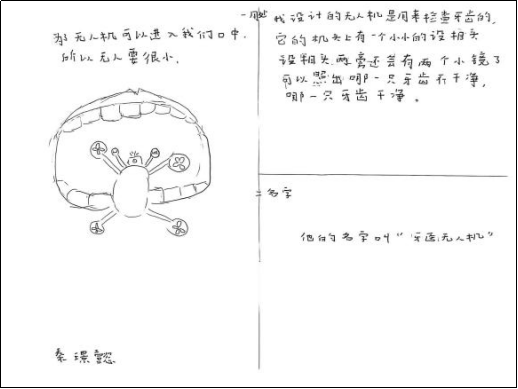 那无人机可以进入我们口中,
所以无人要很小.
我设计的无人机是用来检查牙齿的,
它的机头上有一个小小的设相头
设相头两旁还差有两个小镜子
可以照出哪一只牙齿不干净,
哪一只牙齿干净。
二 名字
他的名字叫“牙医无人机”
秦璟懿